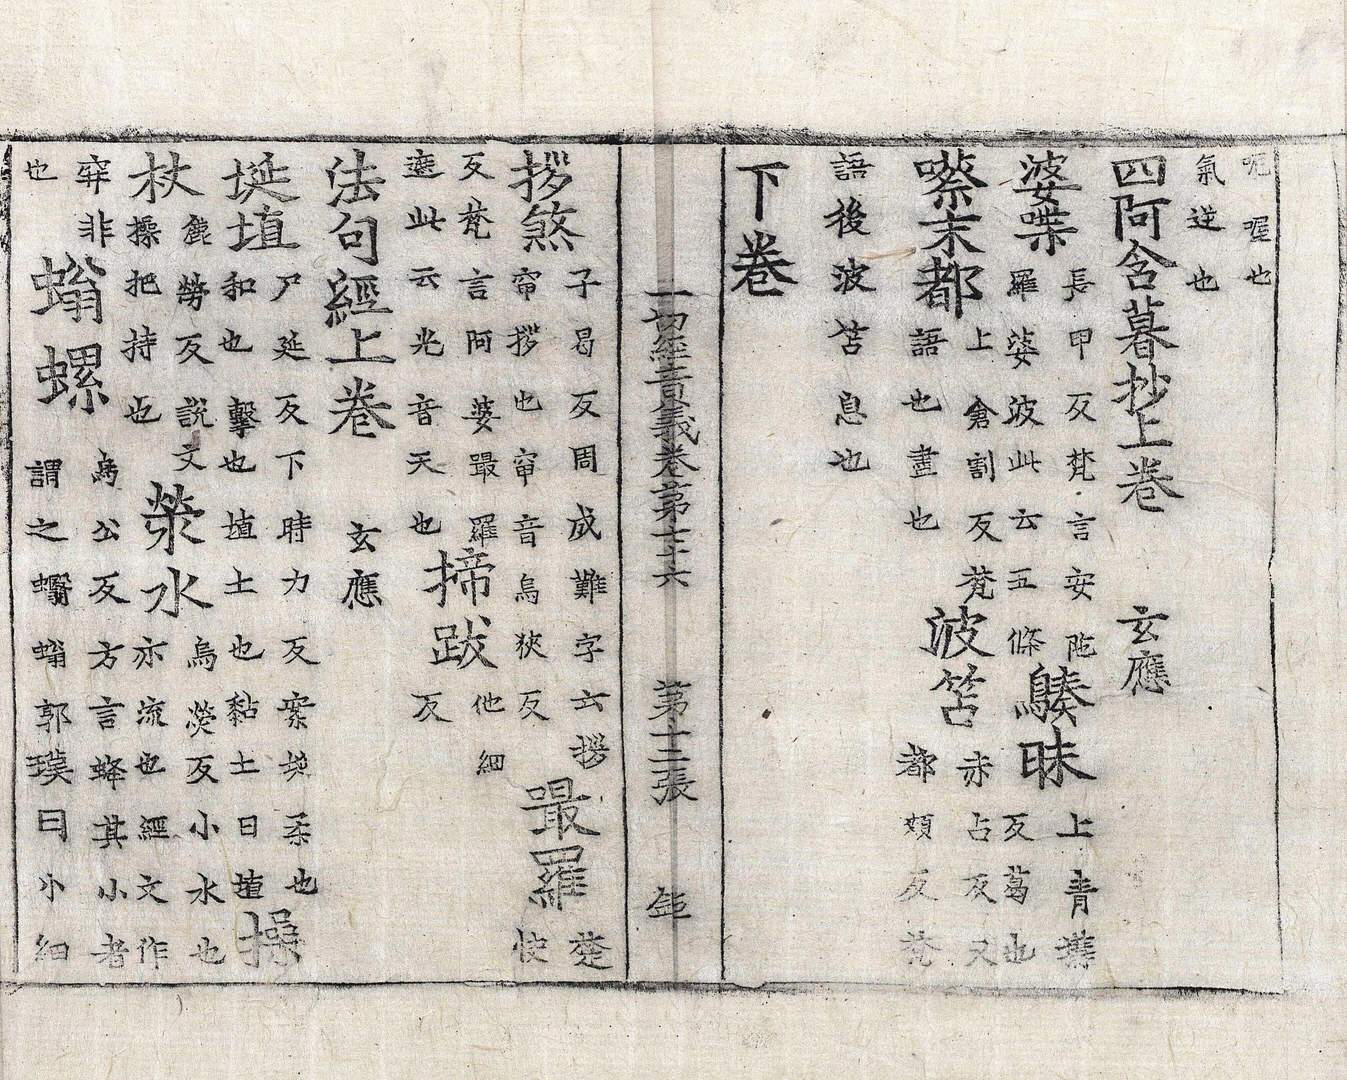 呃喔也
氣逆也
四阿含暮抄上卷 玄應
婆喋 長甲反梵言安陁
羅婆波此云五條
昧 上青
反葛也
嚓末都 上倉割反梵
語也盡也
波笘 赤占反又
都頰反梵
語後波笘息也
下卷
一切經音義卷第七十六 第十二張 鉅
拶煞 子曷反周成難字云拶
拶也 音烏狹反
最羅 楚
快
反梵言阿婆最羅
遮此云光音天也
揥跋 他細
反
法句經上卷 玄應
埏埴 尸延反下時力反案埏柔也
和也擊也埴土也黏土曰埴
操
杖 麁勞反說文
操把持也
滎水 烏熒反小水也
亦流也經文作
穽非
也
螉螺 烏公反方言蜂其小者
謂之蠮螉郭璞曰小細